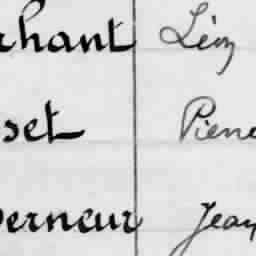 rhant Léon
set Pierre
verneur Jean